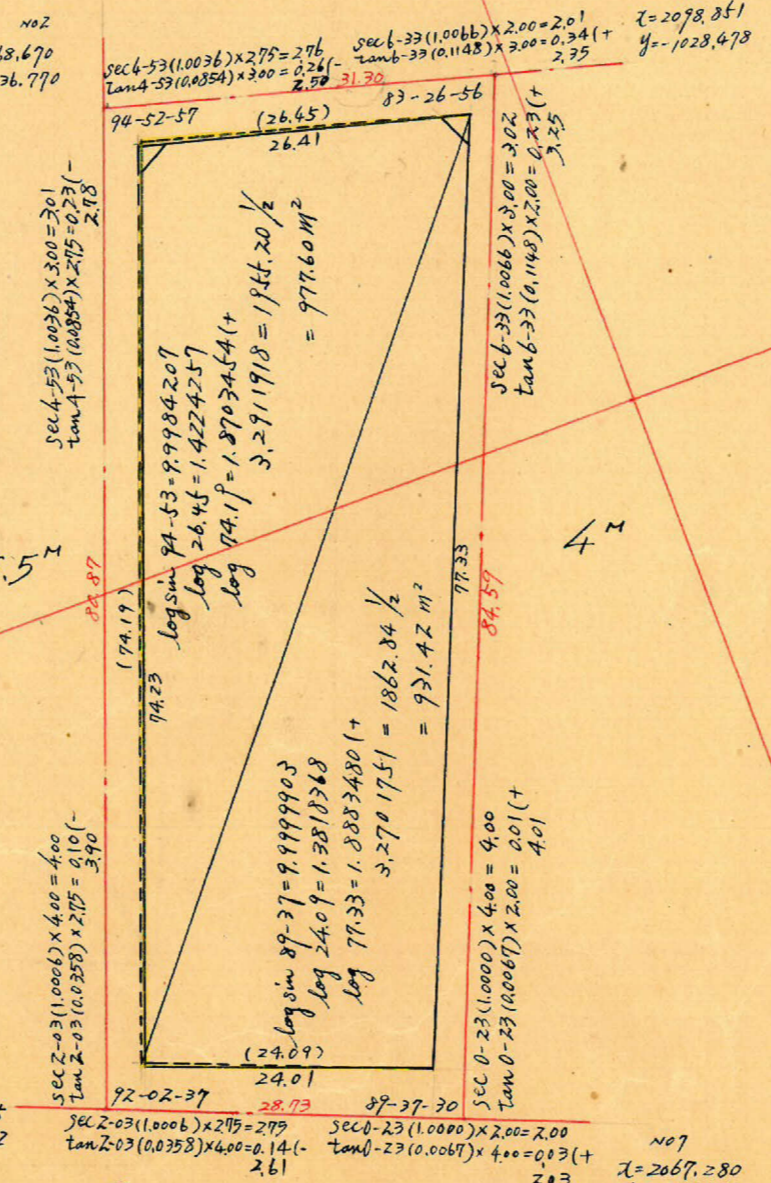 NO2
68,670
36.770
sec4-53(1.0036)×2.75=2.76
tan4-53(0.0854)×3.00=0.26(-
2.50
sec6-33(1.0066)×2.00=2.01
tan6-33(0.1148)×3.00=0.34(+
2.35
x=2098.851
y=-1028,478
31.30
94-52-57
(26.45)
26.41
83-26-56
sec4-53(1.0036)×3.00=3.01
tan4-53(0.0854)×2.75=0.23(-
2.78
sec6-33(1.0066)×3.00=3.02
tan6-33(0.1148)×2.00=0.23(+
3.25
log sin 94-53=9.9984207
log 26.45=1.4224257
log 74.19=1.8703454(+
3.2911918=1955.20 1/2
=977.60 m²
5M
4M
80.87
(74.19)
74.23
77.33
84.59
log sin 89-37=9.9999903
log 24.09=1.3818368
log 77.33=1.8883480(+
3.2701751=1862.84 1/2
=931.42 m²
sec2-03(1.0006)×4.00=4.00
tan2-03(0.0358)×2.75=0.10(-
3.90
sec0-23(1.0000)×4.00=4.00
tan0-23(0.0067)×2.00=0.01(+
4.01
(24.09)
24.01
92-02-37
28.73
89-37-30
sec2-03(1.0006)×2.75=2.75
tan2-03(0.0358)×4.00=0.14(-
2.61
sec0-23(1.0000)×2.00=2.00
tan0-23(0.0067)×4.00=0.03(+
2.03
NO7
x=2067.280